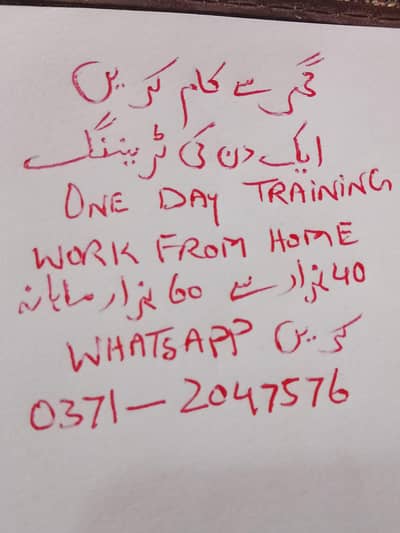 گھر سے کام کریں
ایک دن کی ٹریننگ
ONE DAY TRAINING
WORK FROM HOME
40 ہزار سے 60 ہزار ماہانہ
WHATSAPP کریں
0371-2047576